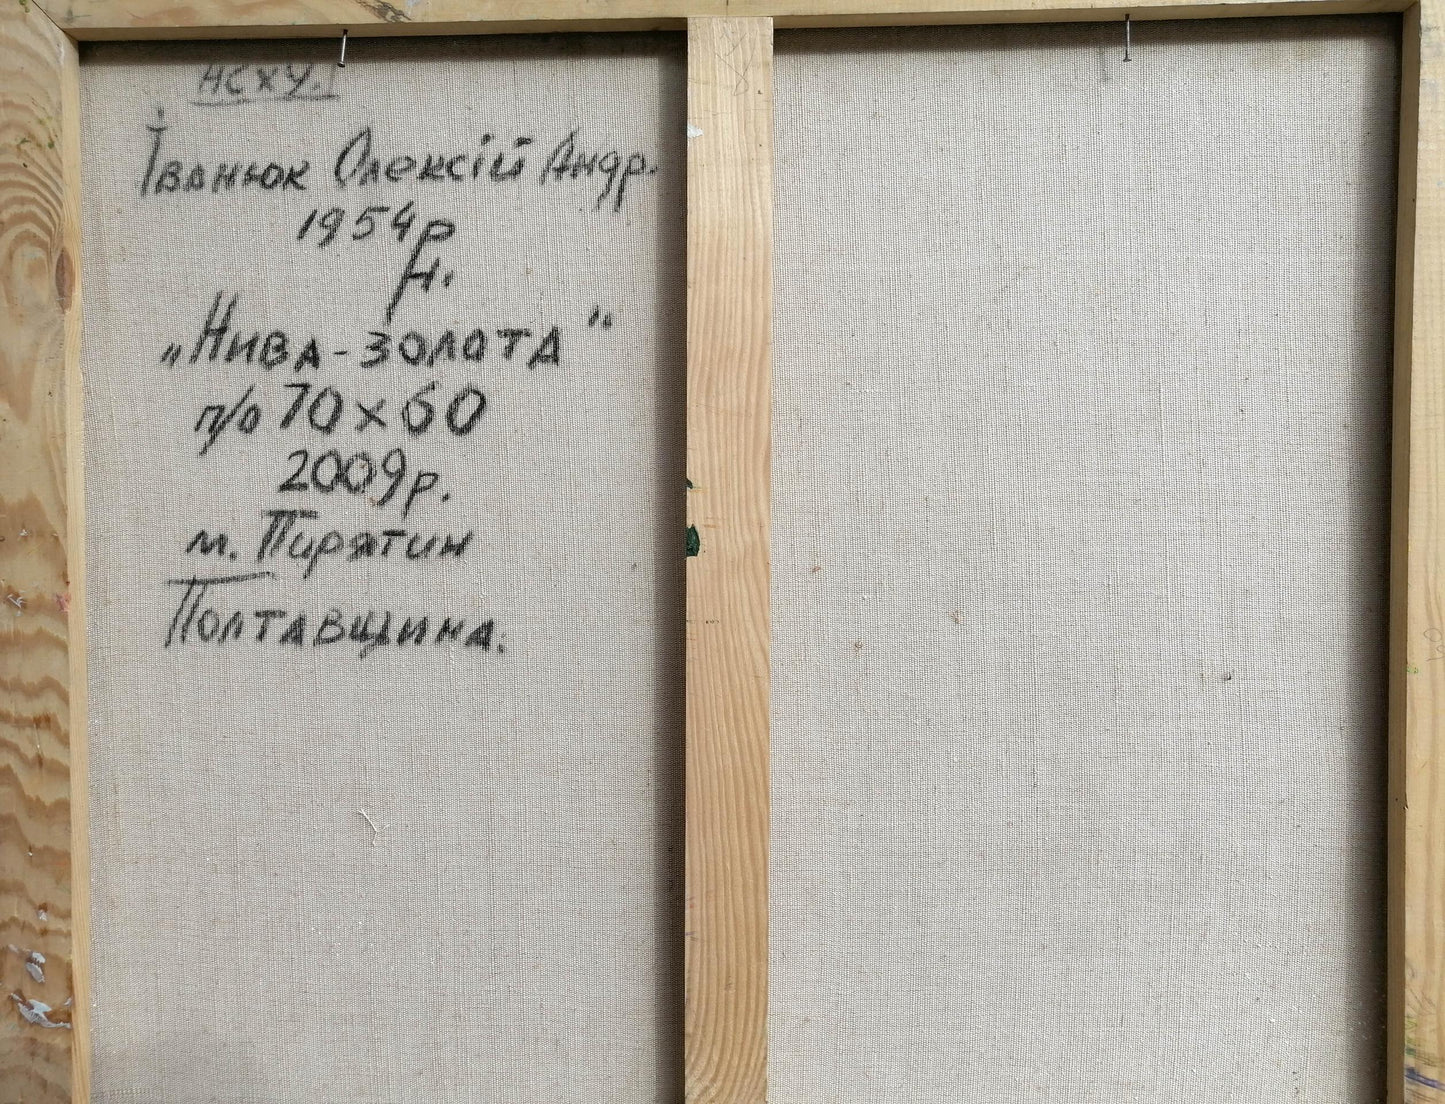 НСХУ.
Іванюк Олексій Андр.
1954р
н.
„Нива-золота"
п/о 70х60
2009р.
м. Пирятин
Полтавщина.